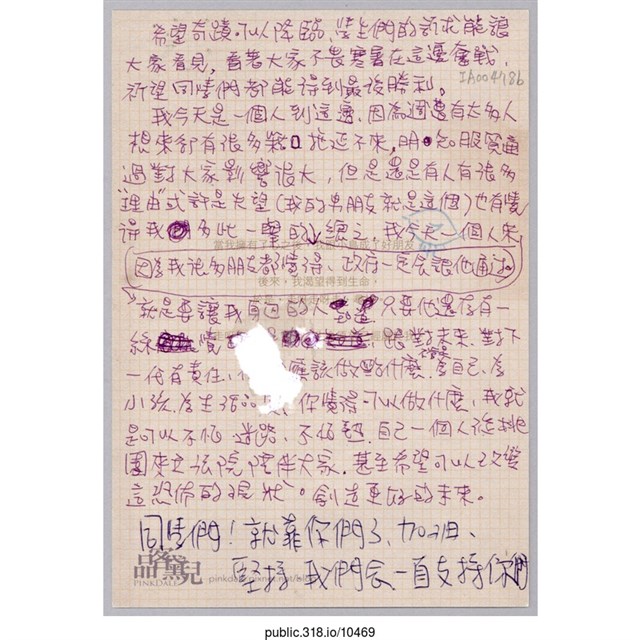 希望奇蹟可以降臨、學生們的訴求能讓
大家看見,看著大家不畏寒暑在這邊奮戰,
IA004786
祈望同學們都能得到最後勝利。
我今天是一個人到這邊,因為週遭有太多人
想來卻有很多藉口推延不來,明知服貿通
過對大家影響很大,但是還是有人有很多
"理由"或許是失望(我的男朋友就是這個)也有覺
得我多此一舉的、總之,我今天一個人來
因為我很多朋友都覺得、政府一定會讓他通過
後來,我渴望得到生命,
就是要讓我身邊的人知道只要他還存有一
絲 覺 對未來、對下
一代有責任、 應該做點什麼、為自己、為
小孩、為生活品 你覺得可以做什麼,我就
是可以不怕迷路、不怕熱、自己一個人從桃
園來立法院陪伴大家,甚至希望可以改變
這恐怖的現狀。創造更好的未來。
同學們!就靠你們了、加油、
堅持 我們會一直支持你們
品客黛兒
PINKDALE pinkdale.pixnet.net/blog
public.318.io/10469